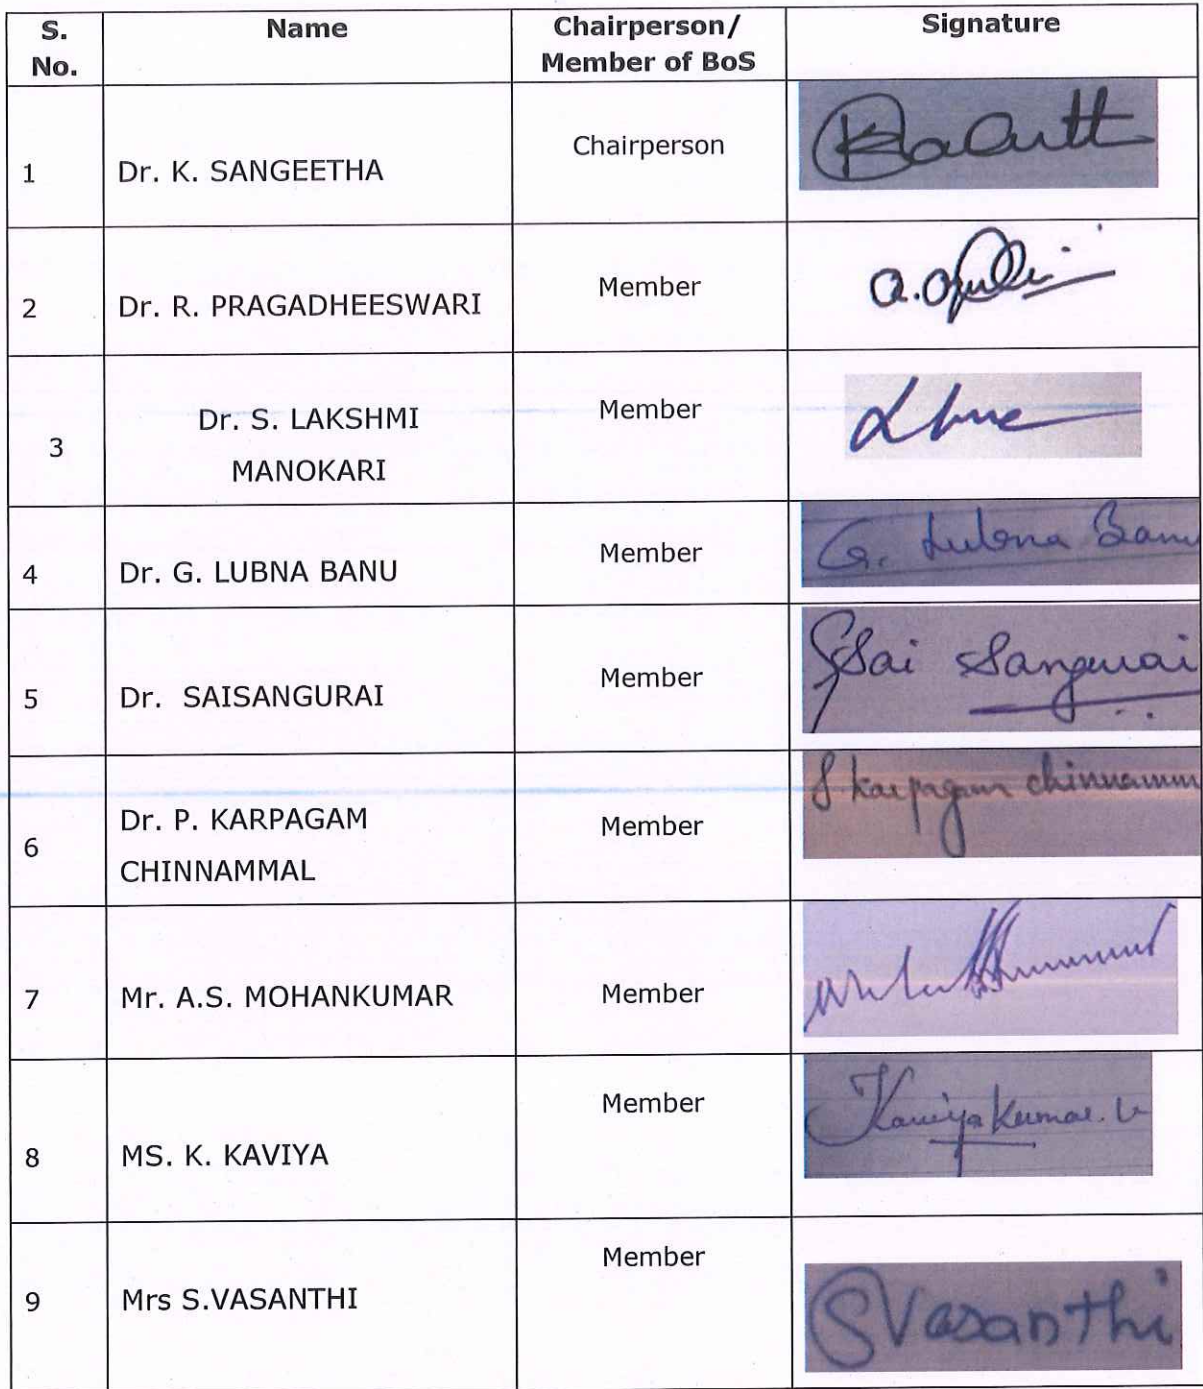 S. No.
Name
Chairperson/
Member of BoS
Signature
1
Dr. K. SANGEETHA
Chairperson
2
Dr. R. PRAGADHEESWARI
Member
3
Dr. S. LAKSHMI
MANOKARI
Member
4
Dr. G. LUBNA BANU
Member
G. Lubna Banu
5
Dr. SAISANGURAI
Member
Sai Sangurai
6
Dr. P. KARPAGAM
CHINNAMMAL
Member
karpagam chinnamm
7
Mr. A.S. MOHANKUMAR
Member
8
MS. K. KAVIYA
Member
Kaviya Kumar. V
9
Mrs S.VASANTHI
Member
SVasanthi